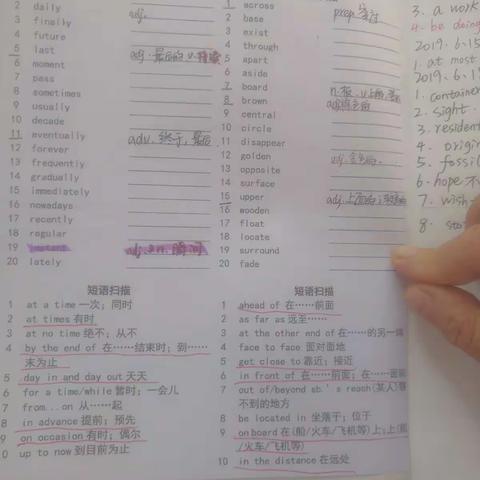 2 daily
3 finally adj.
4 future
5 last adj. 最后的 v. 持续
6 moment
7 pass
8 sometimes
9 usually
10 decade
11 eventually adv. 终于, 最后
12 forever
13 frequently
14 gradually
15 immediately
16 nowadays
17 recently
18 regular
19 instant
20 lately
短语扫描
1 at a time 一次；同时
2 at times 有时
3 at no time 绝不；从不
4 by the end of 在……结束时；到……
末为止
5 day in and day out 天天
6 for a time/while 暂时；一会儿
7 from...on 从……起
8 in advance 提前；预先
9 on occasion 有时；偶尔
10 up to now 到目前为止
1 across prep.
2 base
3 exist
4 through
5 apart
6 aside
7 board
8 brown
9 central
10 circle
11 disappear
12 golden adj. 金色的
13 opposite
14 surface
15 upper
16 wooden
17 float
18 locate
19 surround
20 fade
短语扫描
1 ahead of 在……前面
2 as far as 远至……
3 at the other end of 在……的另一端
4 face to face 面对面地
5 get close to 靠近；接近
6 in front of 在……前面；在……面前
7 out of/beyond sb's reach (某人)够
不到的地方
8 be located in 坐落于；位于
9 on board 在(船/火车/飞机等)上；上(船
/火车/飞机等)
10 in the distance 在远处
3. a work
4. be doing
2019.6.15
1. at most
2019.6.1
1. container
2. sight
3. resident
4. origin
5. fossil
6. hope
7. wish
8.